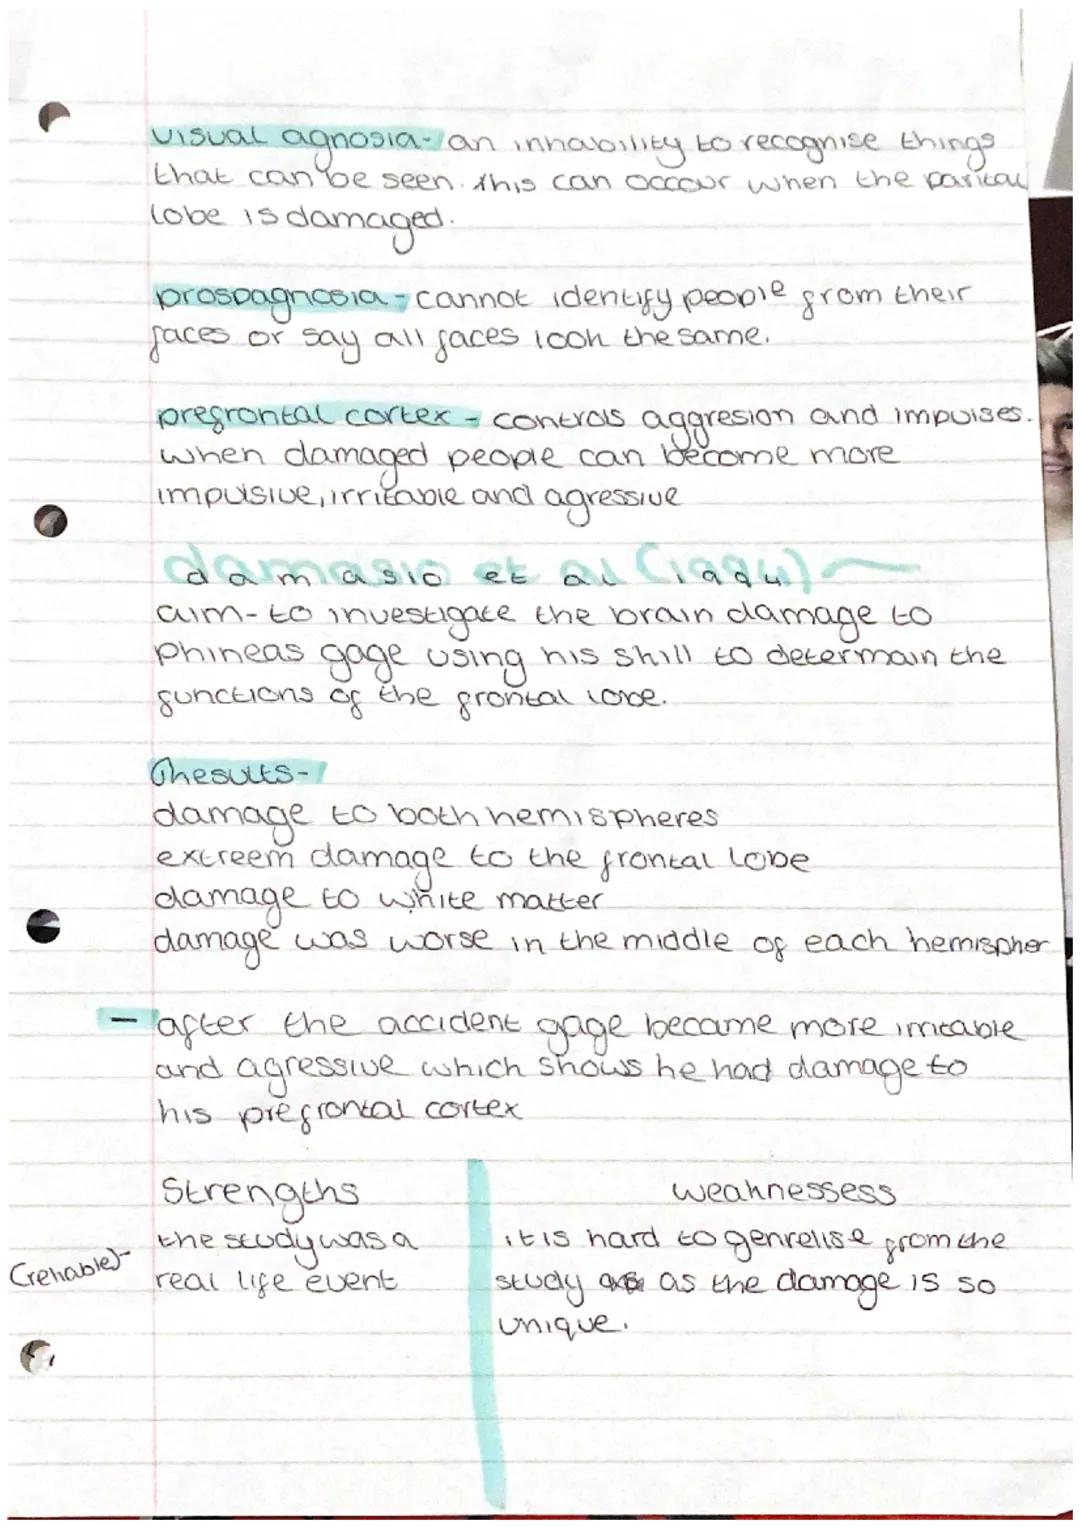 visual agnosia - an inhability to recognise things
that can be seen. this can occour when the parital
lobe is damaged.
prospagnosia - cannot identify people from their
faces or say all faces look the same.
prefrontal cortex - controls aggresion and impulses.
when damaged people can become more
impulsive, irritable and agressive
damasio et al (1994)
aim - to investigate the brain damage to
phineas gage using his skill to determain the
functions of the frontal lobe.
results -
damage to both hemispheres
extreem damage to the frontal lobe
damage to white matter
damage was worse in the middle of each hemispher
- after the accident gage became more irritable
and agressive which shows he had damage to
his prefrontal cortex
Strengths
the study was a
(reliable) - real life event
weaknessess
it is hard to genrelise from the
study as the damage is so
unique.